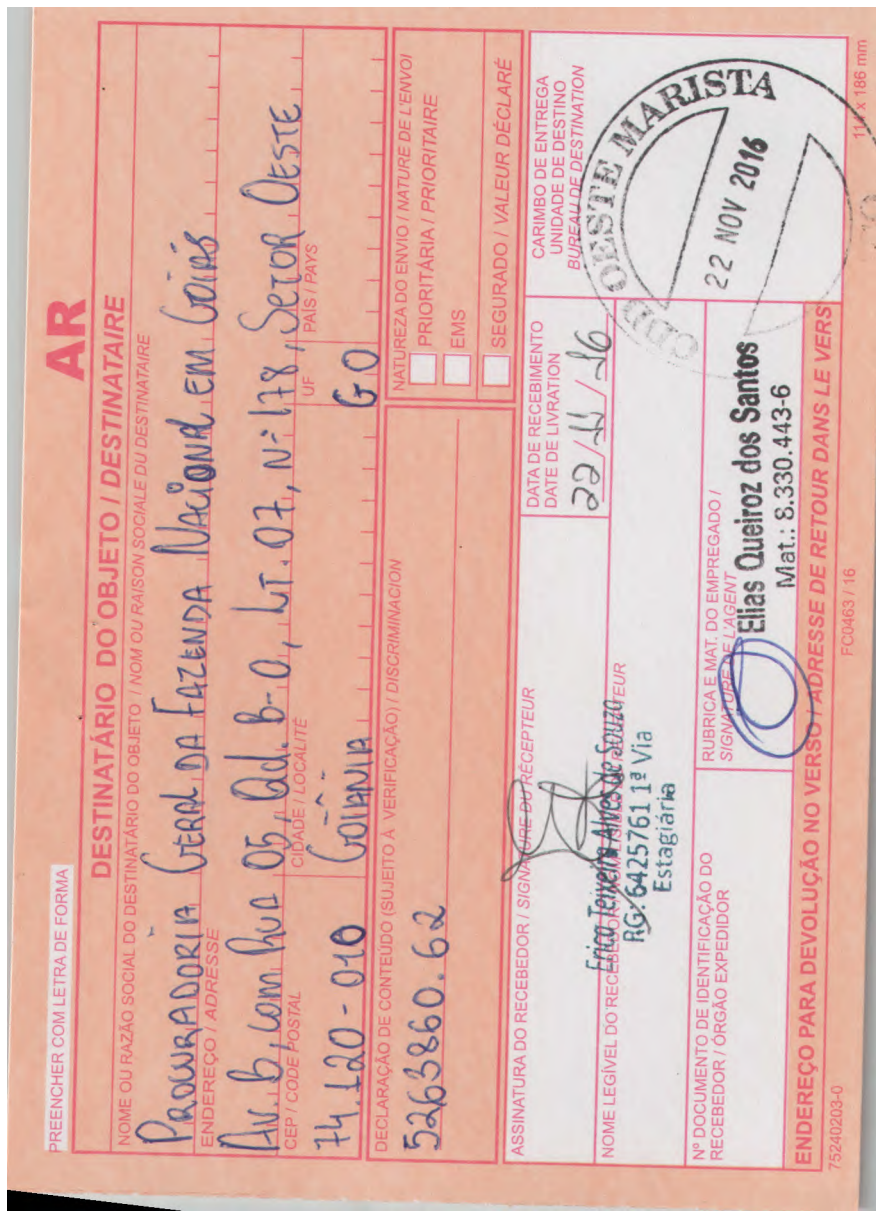 PREENCHER COM LETRA DE FORMA
AR
DESTINATÁRIO DO OBJETO / DESTINATAIRE
NOME OU RAZÃO SOCIAL DO DESTINATÁRIO DO OBJETO / NOM OU RAISON SOCIALE DU DESTINATAIRE
PROCURADORIA GERAL DA FAZENDA NACIONAL EM GOIÁS
ENDEREÇO / ADRESSE
AV. B, COM RUA 05, Qd. B-O, LT. 07, Nº 178, SETOR OESTE
CEP / CODE POSTAL
CIDADE / LOCALITÉ
UF
PAÍS / PAYS
74.120-010
GOIÂNIA
GO
DECLARAÇÃO DE CONTEÚDO (SUJEITO À VERIFICAÇÃO) / DISCRIMINACION
5263860.62
NATUREZA DO ENVIO / NATURE DE L'ENVOI
PRIORITÁRIA / PRIORITAIRE
EMS
SEGURADO / VALEUR DÉCLARÉ
ASSINATURA DO RECEBEDOR / SIGNATURE DU RÉCEPTEUR
DATA DE RECEBIMENTO
DATE DE LIVRATION
22/11/16
CARIMBO DE ENTREGA
UNIDADE DE DESTINO
BUREAU DE DESTINATION
CDD OESTE MARISTA
22 NOV 2016
NOME LEGÍVEL DO RECEBEDOR /
Erica Teixeira Alves de Souza
RG: 6425761 1ª Via
Estagiária
Nº DOCUMENTO DE IDENTIFICAÇÃO DO
RECEBEDOR / ÓRGÃO EXPEDIDOR
RUBRICA E MAT. DO EMPREGADO /
SIGNATURE DE L'AGENT
Elias Queiroz dos Santos
Mat.: 8.330.443-6
ENDEREÇO PARA DEVOLUÇÃO NO VERSO / ADRESSE DE RETOUR DANS LE VERS
75240203-0
FC0463 / 16
114 x 186 mm